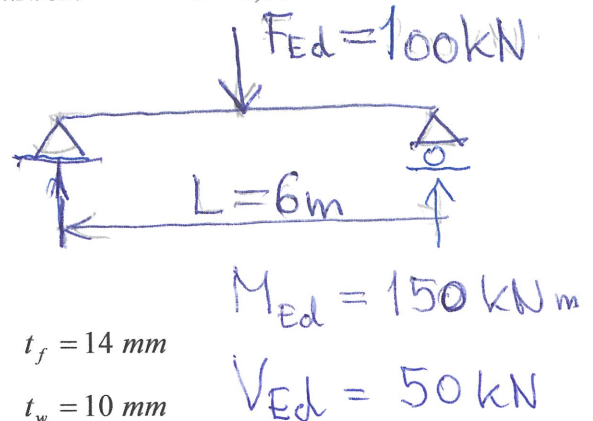 F_Ed = 100kN
L = 6m
M_Ed = 150 kNm
t_f = 14 mm
V_Ed = 50 kN
t_w = 10 mm